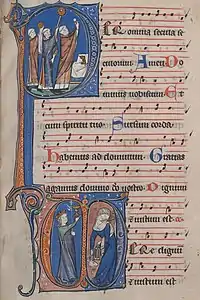 omnia secula se
culorum Amen Do
minus vobiscum Et
cum spiritu tuo Sursum corda
Habemus ad dominum Gracias
agamus domino deo nostro Dignum
et iustum est
Re dignū
et iustum est